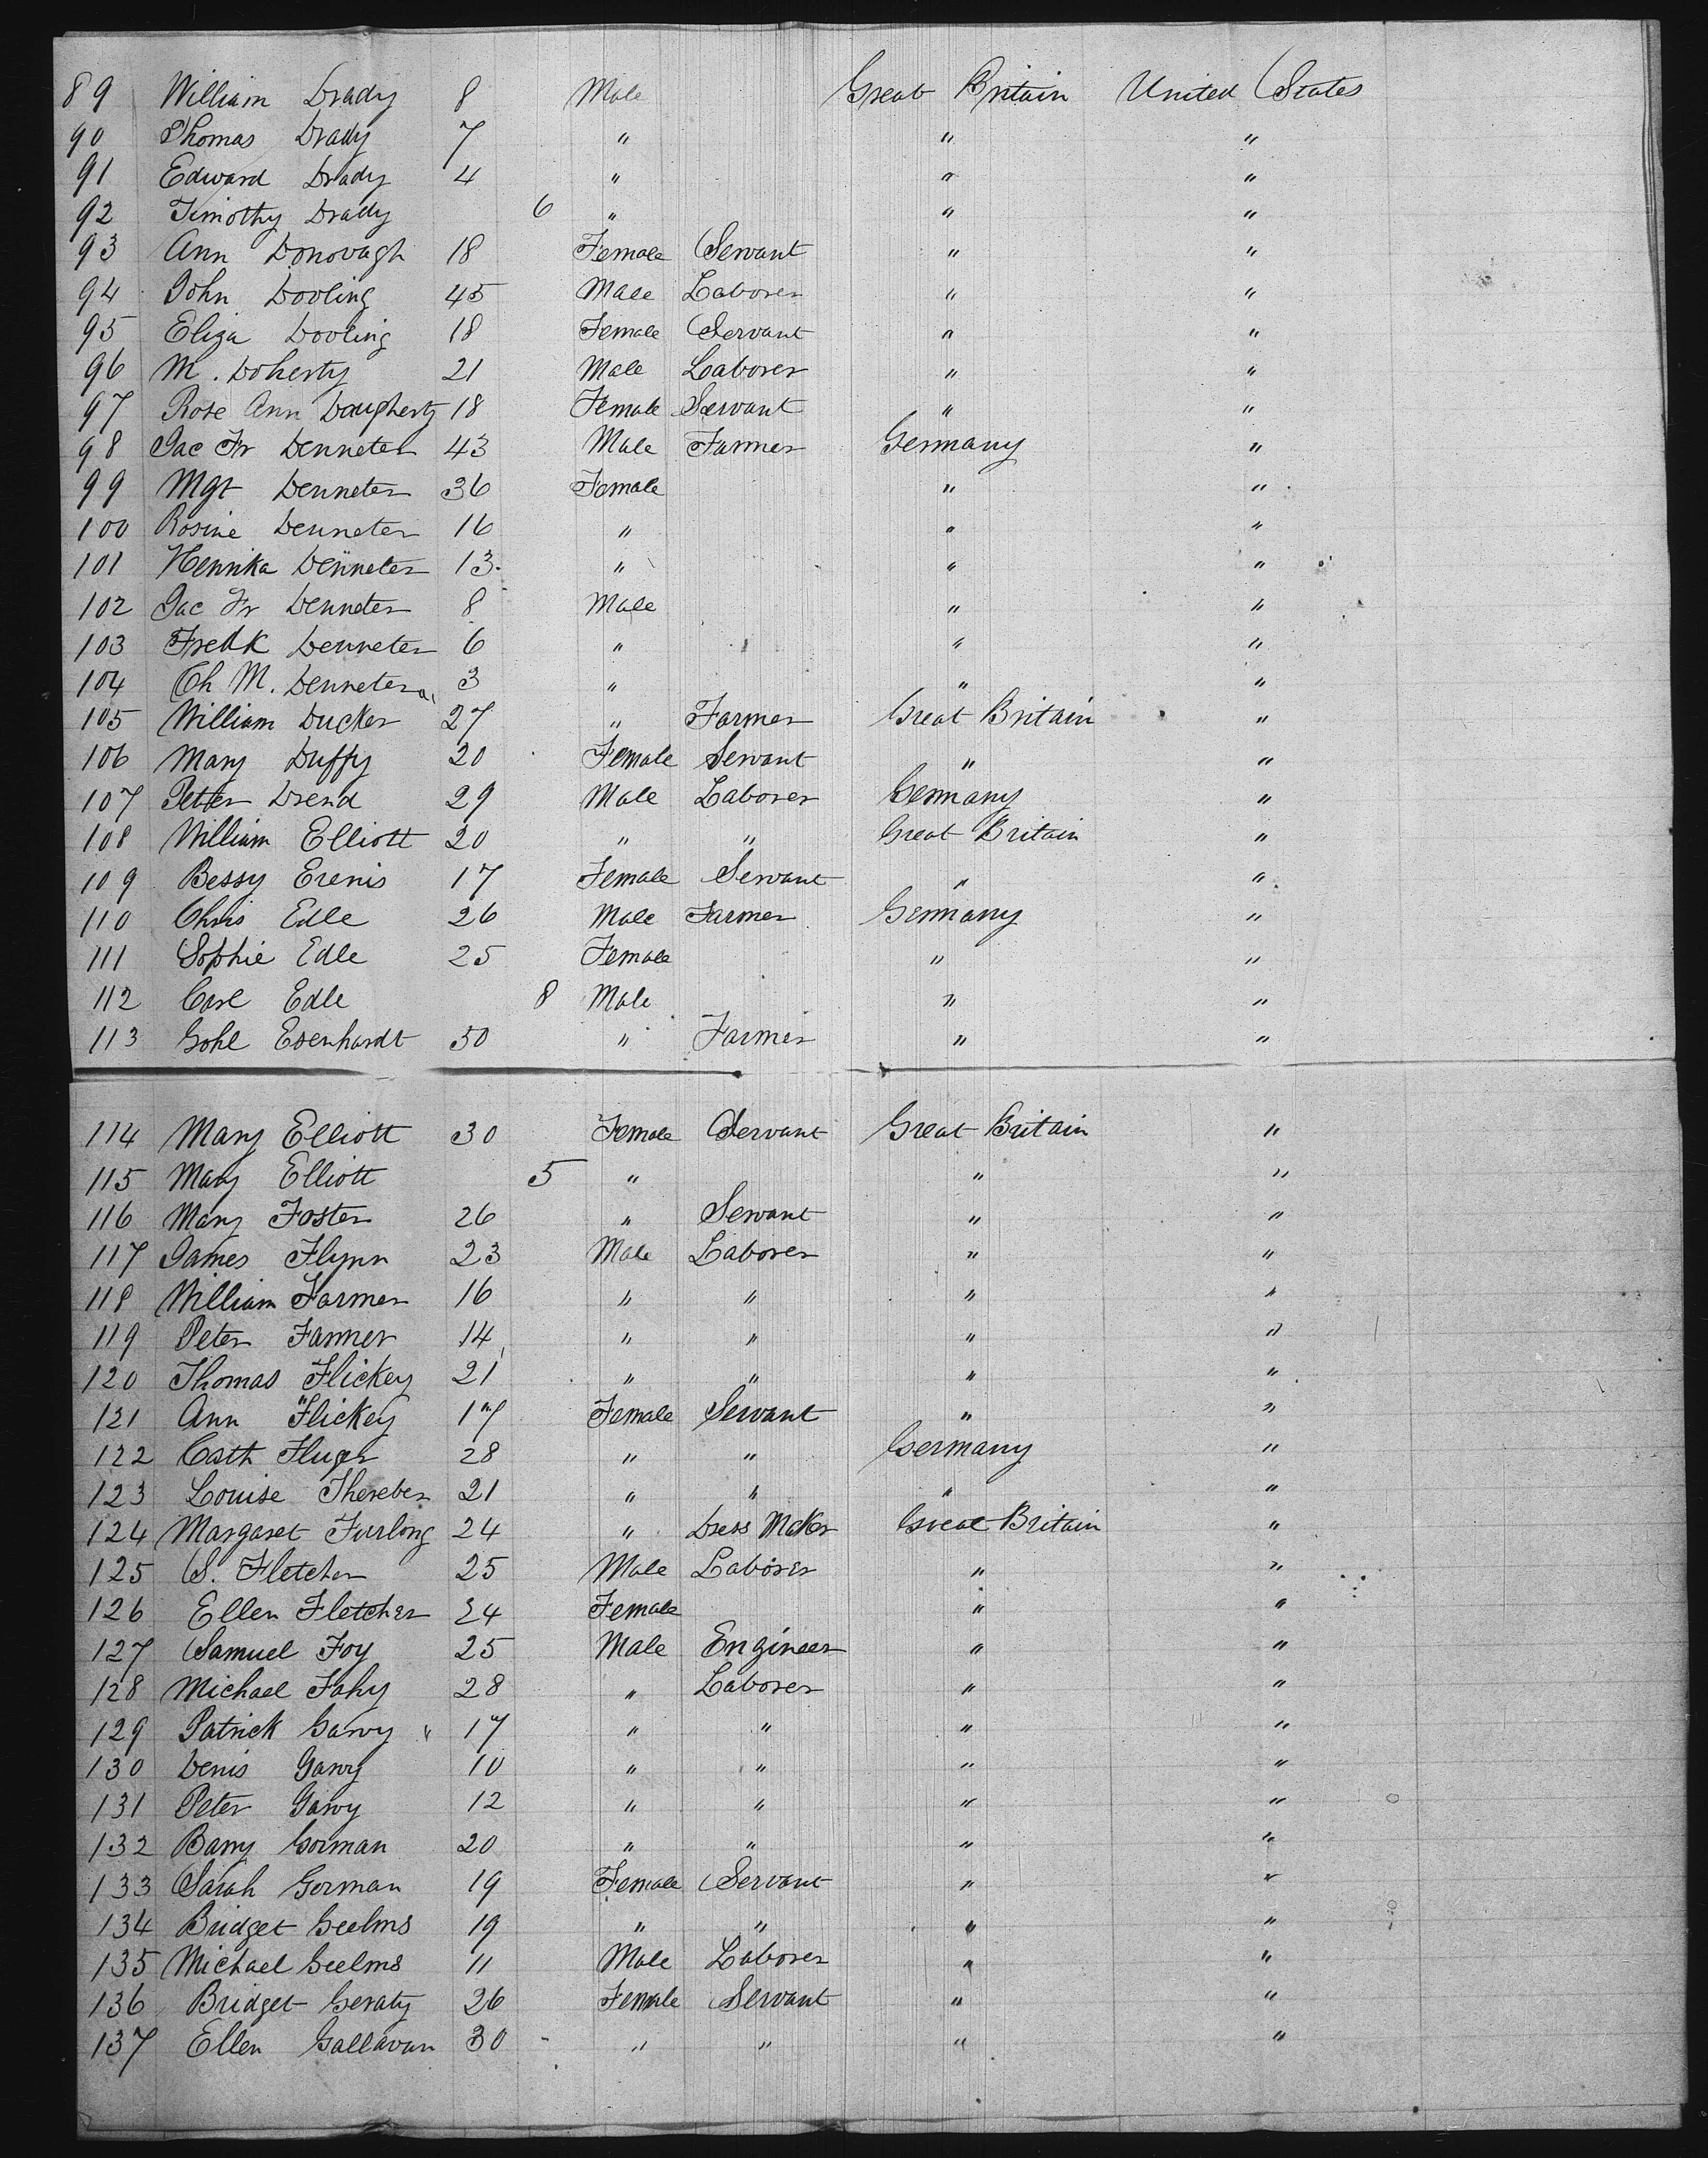 89 William Drady 8 Male Great Britain United States
90 Thomas Drady 7 " " "
91 Edward Drady 4 " " "
92 Timothy Drady 6 " " "
93 Ann Donovagh 18 Female Servant " "
94 John Dooling 45 Male Laborer " "
95 Eliza Dooling 18 Female Servant " "
96 M. Doherty 21 Male Laborer " "
97 Rose Ann Daugherty 18 Female Servant " "
98 Jac Fr Denneter 43 Male Farmer Germany "
99 Mgt Denneter 36 Female " "
100 Rosine Denneter 16 " " "
101 Henrika Denneter 13 " " "
102 Jac Fr Denneter 8 Male " "
103 Fredk Denneter 6 " " "
104 Ch M. Denneter 3 " " "
105 William Ducker 27 " Farmer Great Britain "
106 Mary Duffy 20 Female Servant " "
107 Petter Drend 29 Male Laborer Germany "
108 William Elliott 20 " " Great Britain "
109 Bessy Erenis 17 Female Servant " "
110 Chris Edle 26 Male Farmer Germany "
111 Sophie Edle 25 Female " "
112 Carl Edle 8 Male " "
113 Gohl Esenhardt 50 " Farmer " "
114 Mary Elliott 30 Female Servant Great Britain "
115 Mary Elliott 5 " " "
116 Mary Foster 26 " Servant " "
117 James Flynn 23 Male Laborer " "
118 William Farmer 16 " " " "
119 Peter Farmer 14 " " " "
120 Thomas Flickey 21 " " " "
121 Ann Flickey 17 Female Servant " "
122 Cath Fluger 28 " " Germany "
123 Louise Thereber 21 " " " "
124 Margaret Furlong 24 " Dress Maker Great Britain "
125 S. Fletcher 25 Male Laborer " "
126 Ellen Fletcher 24 Female " "
127 Samuel Foy 25 Male Engineer " "
128 Michael Fahy 28 " Laborer " "
129 Patrick Garvy 17 " " " "
130 Denis Garvy 10 " " " "
131 Peter Garvy 12 " " " "
132 Barry Gorman 20 " " " "
133 Sarah Gorman 19 Female Servant " "
134 Bridget Geelms 19 " " " "
135 Michael Geelms 11 Male Laborer " "
136 Bridget Geraty 26 Female Servant " "
137 Ellen Gallavan 30 " " " "